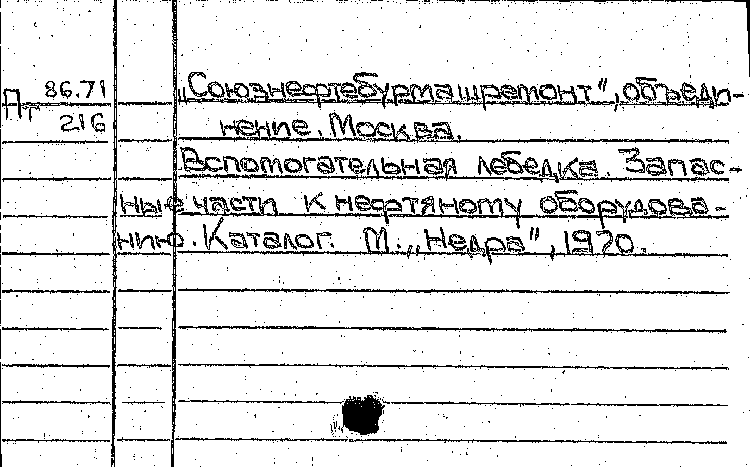 Пт 86.71
216
„Союзнефтебурмашремонт", объеди-
нение. Москва.
Вспомогательная лебедка. Запас-
ные части к нефтяному оборудова-
нию. Каталог. М., „Недра", 1970.